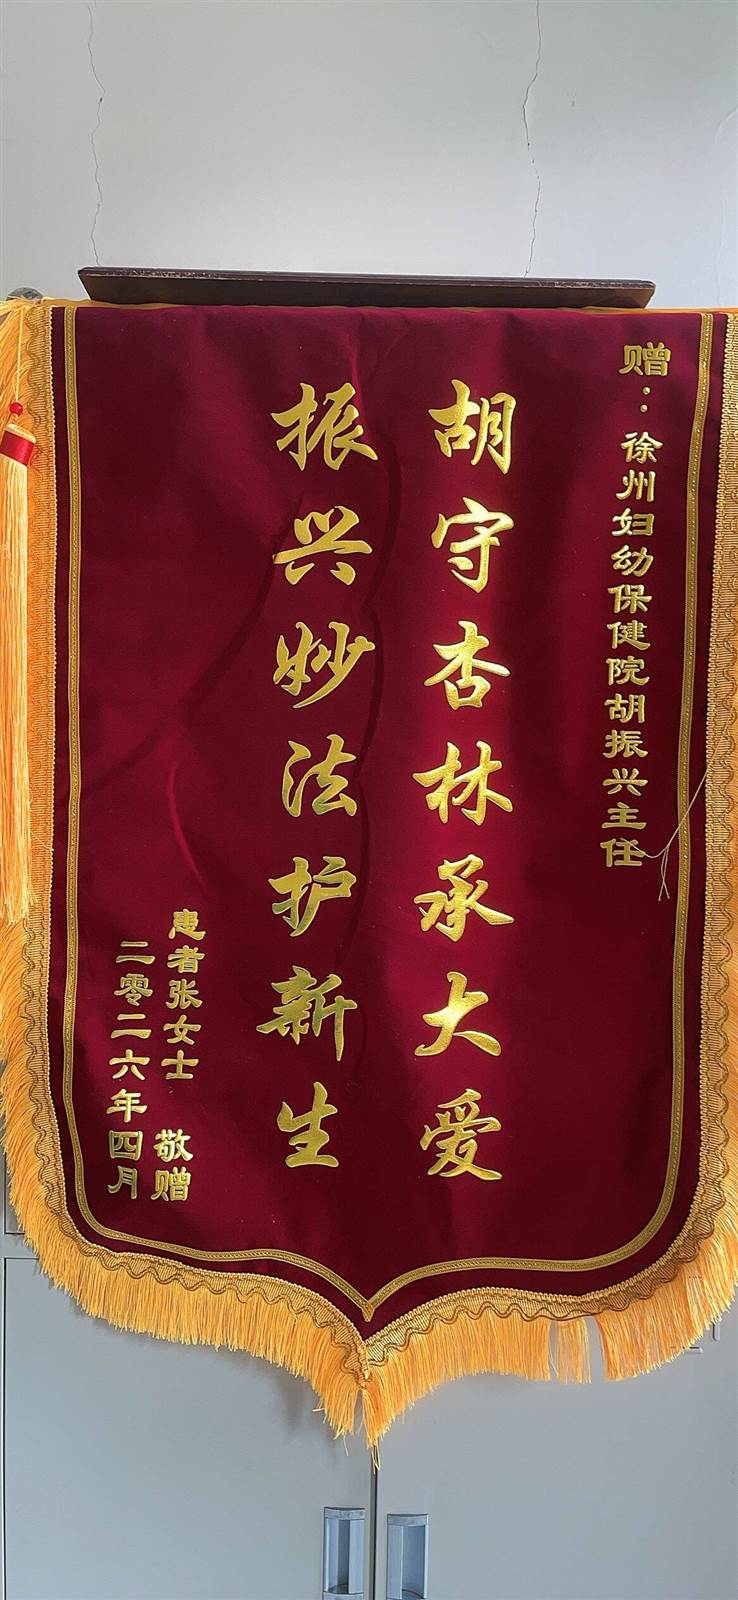 赠：徐州妇幼保健院胡振兴主任
胡守杏林承大爱
振兴妙法护新生
患者张女士 敬赠
二零二六年四月